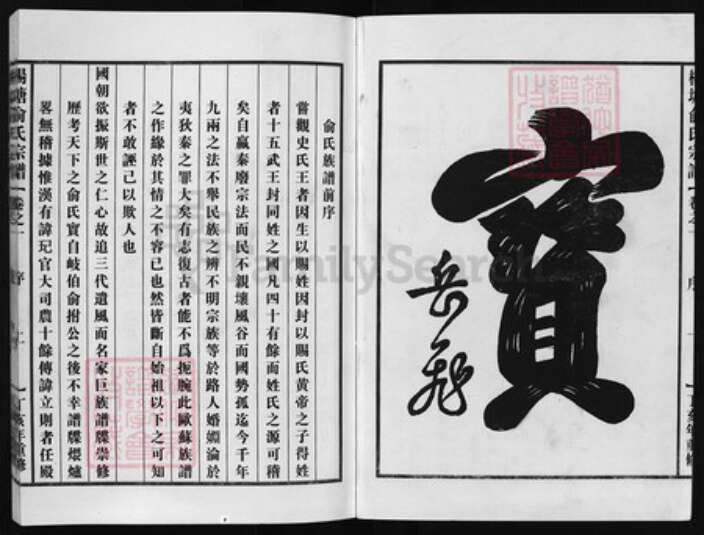 寶
岳飛
俞氏族譜前序
嘗觀史氏王者因生以賜姓因封以賜氏黃帝之子得姓
者十五武王封同姓之國凡四十有餘而姓氏之源可稽
矣自嬴秦廢宗法而民不親壞風谷而國勢孤迄今千年
九兩之法不舉民族之辨不明宗族等於路人婚媾淪於
夷狄秦之罪大矣有志復古者能不爲扼腕此歐蘇族譜
之作緣於其情之不容已也然皆斷自始祖以下之可知
者不敢誣己以欺人也
國朝欲振斯世之仁心故追三代遺風而名家巨族譜牒崇修
歷考天下之俞氏實自岐伯俞拊公之後不幸譜牒煨爐
畧無稽據惟漢有諱玘官大司農十餘傳諱立則者任殿
塘俞氏宗譜
卷之一
序
丁亥年重修
FamilySearch